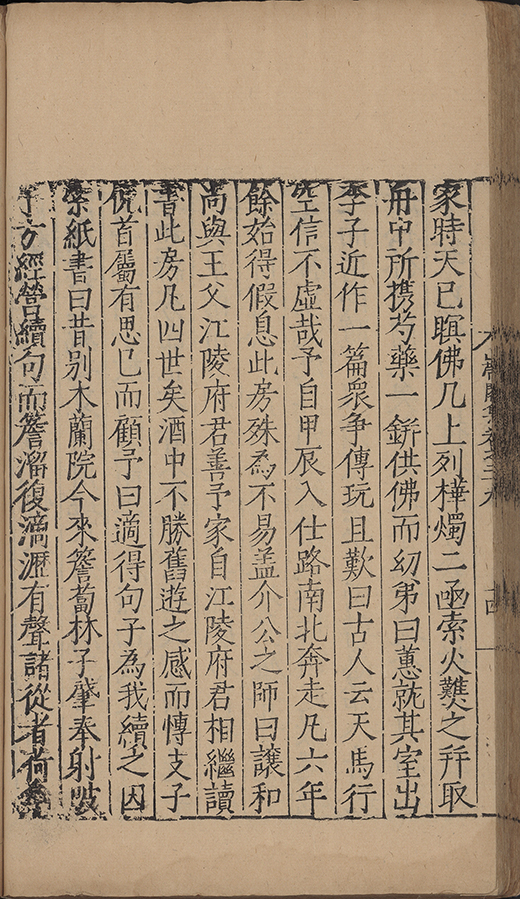 家時天已暝佛几上列樺燭二亟索火㸐之幷取
舟中所携芍藥一鉼供佛而幼弟曰蕙就其室出
李子近作一篇衆争傳玩且歎曰古人云天馬行
空信不虛哉予自甲辰入仕路南北奔走凡六年
餘始得假息此房殊為不易盖介公之師曰讓和
尚與王父江陵府君善予家自江陵府君相繼讀
書此房凡四世矣酒中不勝舊遊之感而愽支子
俛首屬有思已而顧予曰適得句子為我續之因
索紙書曰昔别木蘭院今來簷蔔林子肇奉射陂
予方經營續句而簷溜復滴瀝有聲諸從者荷
山帶閣集卷之
十四